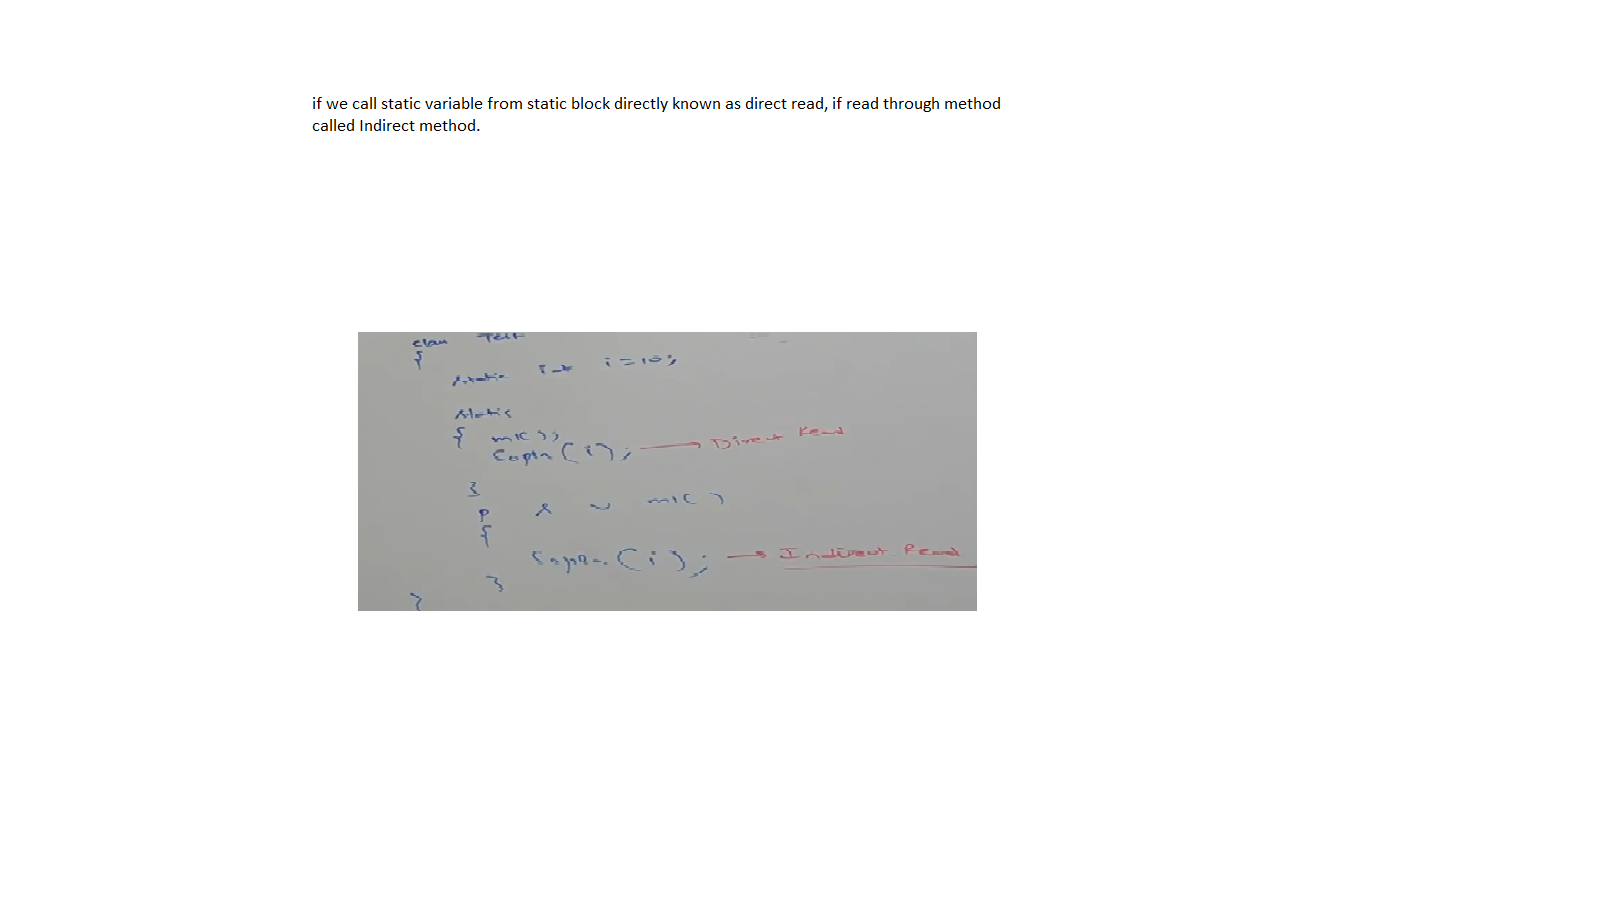 if we call static variable from static block directly known as direct read, if read through method
called Indirect method.
class Test
{
static int i=10;
static
{ m1();
Sopln(i); → Direct Read
}
p s v m1()
{
Sopln(i); → Indirect Read
}
}